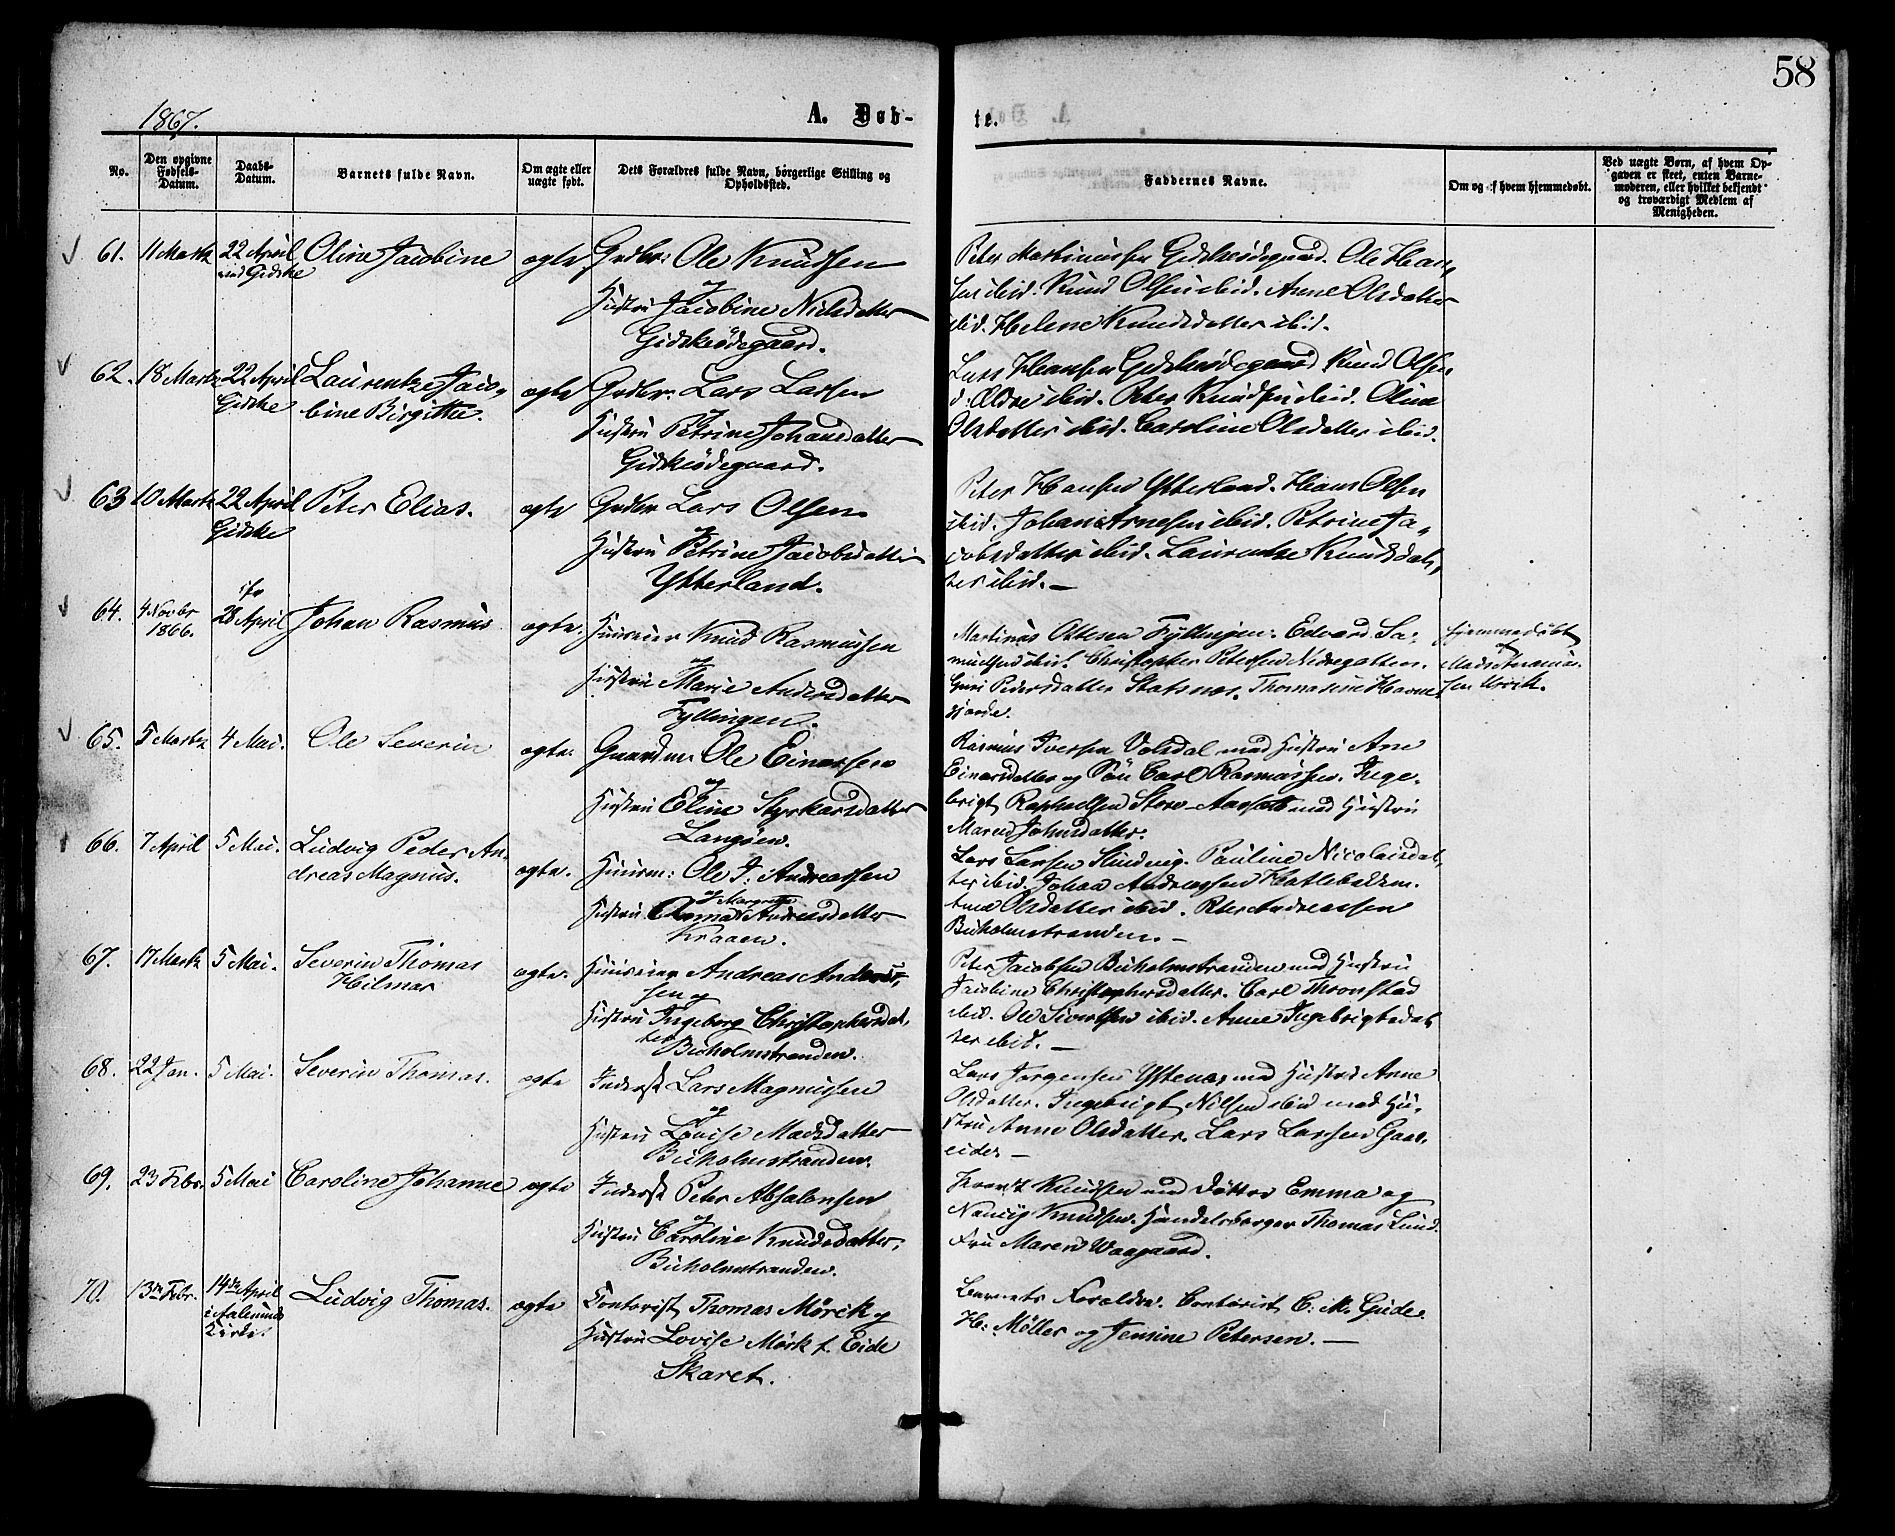 58
1867.
A. Døb-
te.
No.
Den opgivne
Fødsels-
Datum.
Daabs-
Datum.
Barnets fulde Navn.
Om ægte eller
uægte født.
Dets Forældres fulde Navn, borgerlige Stilling og
Opholdssted.
Faddernes Navne.
Om og af hvem hjemmedøbt.
Ved uægte Børn, af hvem Op-
gaven er skeet, enten Barne-
moderen, eller hvilket bekjendt
og troværdigt Medlem af
Menigheden.
61. 11 Marts 22 April Oline Jacobine ægte Grdbr: Ole Knudsen
Gidske og
Hustru Jacobine Nielsdatter
Gidskeødegaard.
Peter Martinussen Gidskeødegaard. Ole Han-
sen ibid. Knud Olsen ibid. Anne Olsdatter
ibid. Helene Knudsdatter ibid.
62. 18 Marts 22 April Laurentze Jaco- ægte Grdbr. Lars Larsen
Gidske bine Birgitte. og
Hustru Petrine Johansdatter
Gidskeødegaard.
Lars Hansen Gidskeødegaard Knud Olsen
d. Ældre ibid. Peter Knudsen ibid. Oline
Olsdatter ibid. Caroline Olsdatter ibid.
63 10 Marts 22 April Peter Elias. ægte Grdbr Lars Olsen
Gidske og
Hustru Petrine Jacobsdatter
Ytterland.
Peter Hansen Ytterland. Hans Olsen
ibid. Johan Arnesen ibid. Petrine Ja-
cobsdatter ibid. Laurentze Knudsdat-
ter ibid. —
64. 4 Novbr 28 April Johan Rasmus ægte. Huuseier Knud Rasmussen
1866. og
Hustru Marie Andersdatter
Fyllingen.
Martinus Ottesen Fyllingen. Edvard Sa-
muelsen ibid. Christopher Petersen Nedregotten.
Guri Pedersdatter Statsnes. Thomasine Havne-
gjerde.
hjemmedøbt
af
Mads Ananias-
sen
65. 5 Marts 4 Mai. Ole Severin ægte. Gaardm: Ole Einarsen
og
Hustru Eline Styrkarsdatter
Langøen.
Rasmus Iversen Volsdal med Hustru Ane
Einarsdatter og Søn Carl Rasmussen. Inge-
brigt Raphaelsen Store Aarsæt med Hustru
Maren Johnsdatter.
66. 7 April 5 Mai. Ludvig Peder An- ægte. Huusm: Ole J: Andreassen
dreas Magnus. og Margrete
Hustru Anna Andreasdatter
Kraaen.
Lars Larsen Slinning. Pauline Nicolaisdat-
ter ibid. Johan Andreassen Hatlebakken.
Olsdatter ibid. Peter Andreassen
Buholmstranden. —
67. 17 Marts 5 Mai. Severin Thomas ægte. Huuseier Andreas Anders-
Hilmar sen og
Hustru Ingeborg Christophersdat-
ter
Buholmstranden.
Peter Jacobsen Buholmstranden med Hustru
Jacobine Christophersdatter. Carl Thronstad
ibid. Ole Sivertsen ibid. Anne Ingebrigtsdat-
ter ibid. —
68. 22 Jan. 5 Mai. Severin Thomas. ægte Inderst Lars Magnussen
og
Hustru Lovise Madsdatter
Buholmstranden.
Lars Jørgensen Ystenes med Hustru Anne
Olsdatter. Ingebrigt Nilsen ibid med Hu-
stru Anne Olsdatter. Lars Larsen Gaas-
eidet —
69. 23 Febr. 5 Mai Caroline Johanne ægte Inderst Peter Absalonsen
og
Hustru Caroline Knudsdatter,
Buholmstranden.
Knudsen med Døttre Emma og
Nancy Knudsen. Handelsborger Thomas Lund.
Fru Maren Waagaard.
70. 13de Febr. 14de April Ludvig Thomas. ægte Contorist Thomas Mörck og
i Aalesunds
Kirke
Hustru Lovise Mörk f. Eide
Skaret.
Barnets Forældre. Contorist C. M. Gude.
H. Møller og Jensine Petersen. —